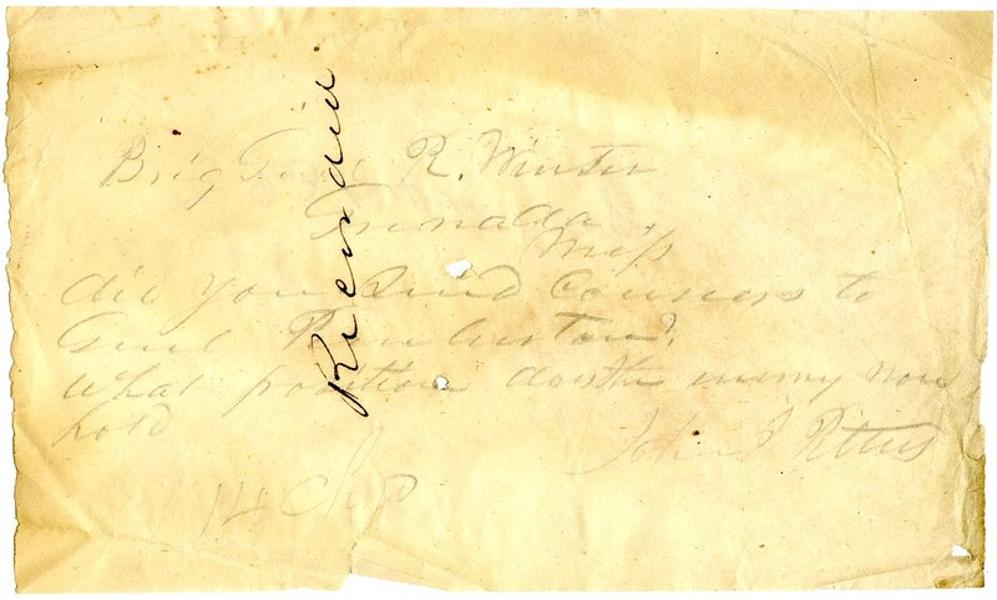 Brig Genl R. Winter
Grenada
Miss
did you Send Couriers to
Genl Pemberton?
What position does the enemy now
hold
John J Pettus
14
Recorded.